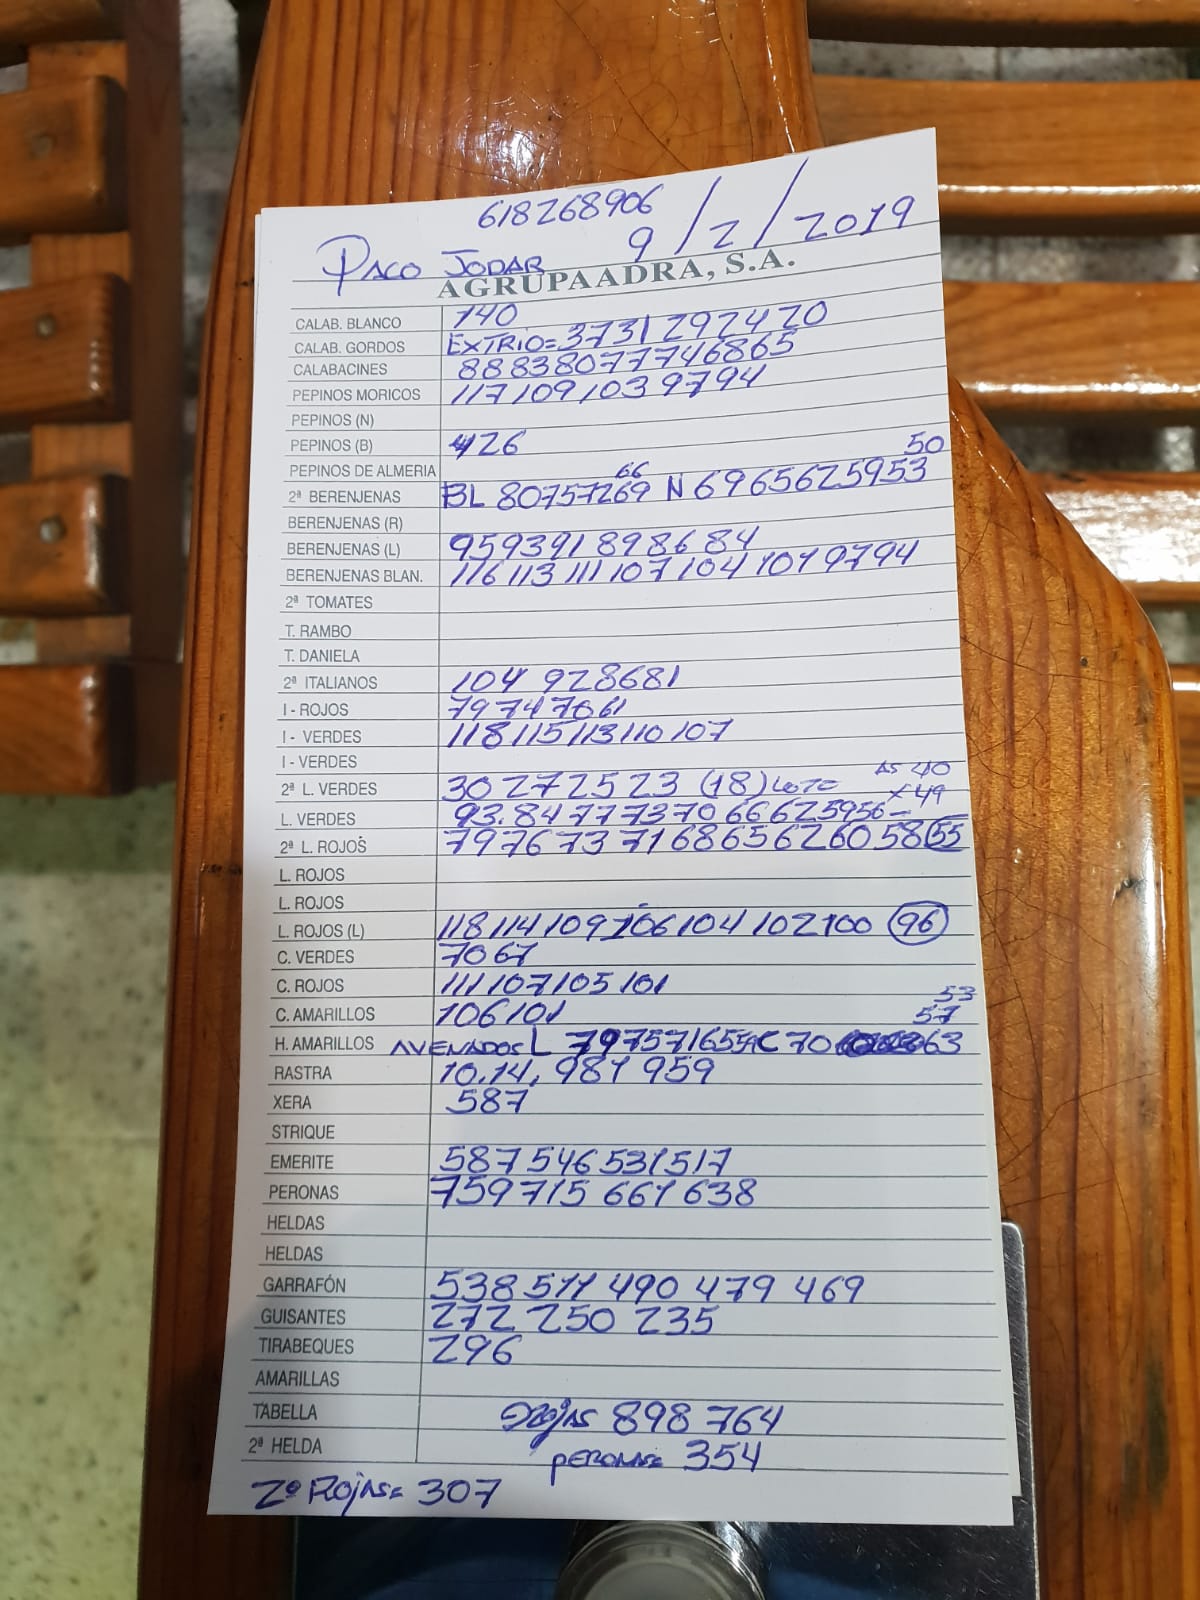 618268906
PACO JODAR 9/2/2019
AGRUPAADRA, S.A.
CALAB. BLANCO 140
CALAB. GORDOS EXTRIO= 3731292420
CALABACINES 88838077746865
PEPINOS MORICOS 1171091039794
PEPINOS (N)
PEPINOS (B) 426
50
PEPINOS DE ALMERIA 66
2ª BERENJENAS BL 80757269 N 6965625953
BERENJENAS (R)
BERENJENAS (L) 959391898684
BERENJENAS BLAN. 116 113 111 107 104 101 9794
2ª TOMATES
T. RAMBO
T. DANIELA
2ª ITALIANOS 104 928681
I - ROJOS 79747061
I - VERDES 118115113110107
I - VERDES
AS 40
2ª L. VERDES 30272523 (18) LOTE x 49
L. VERDES 93.84777370666259 56-
2ª L. ROJOS 797673716865626058 55
L. ROJOS
L. ROJOS
L. ROJOS (L) 118114109106104102100 96
C. VERDES 7067
C. ROJOS 111107105101
53
C. AMARILLOS 106101 57
H. AMARILLOS AVENADOS L C 70 63
RASTRA 10.14, 981 959
XERA 587
STRIQUE
EMERITE 587546531517
PERONAS 759715 661638
HELDAS
HELDAS
GARRAFÓN 538 511 490 479 469
GUISANTES 272 250 235
TIRABEQUES 296
AMARILLAS
TABELLA 898 764
2ª HELDA PERONAS= 354
2ª ROJAS= 307